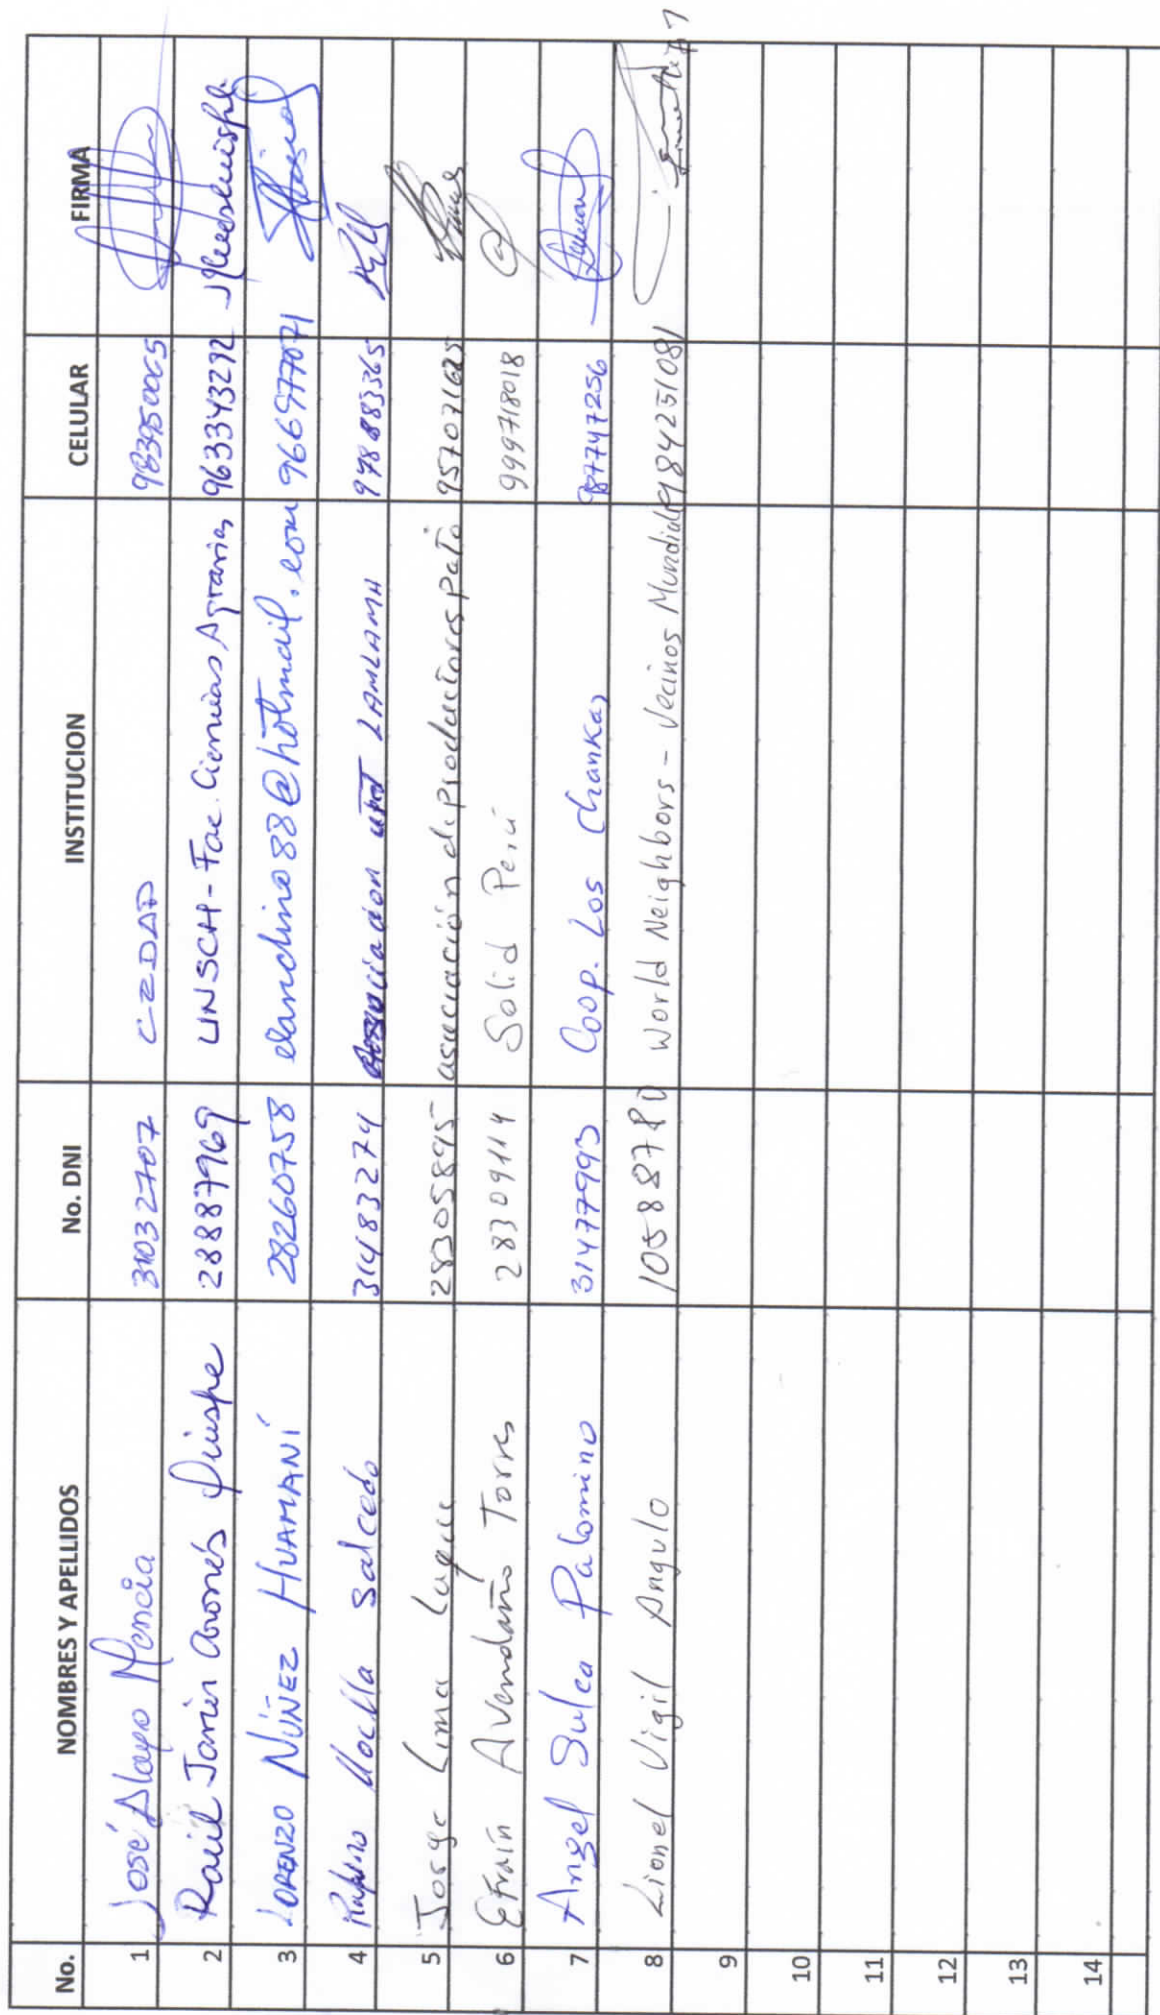 No. NOMBRES Y APELLIDOS No. DNI INSTITUCION CELULAR FIRMA
1 José Alayo Mencia 31032707 CEDAP 983950065
2 Raúl Javier Aronés Quispe 28887969 UNSCH - Fac. Ciencias Agrarias 963343272
3 LORENZO NÚÑEZ HUAMANÍ 28260758 elandino88@hotmail.com 966977071
4 Rufino Salcedo 31483274 LAMLAMA 978883365
5 Jorge Lima Laque 28305895 asociación de productores pato 957071625
6 Efraín Avendaño Torres 28309114 Solid Perú 999718018
7 Angel Sulca Palomino 31477993 Coop. Los Chankas 987747256
8 Lionel Vigil Angulo World Neighbors - Vecinos Mundiales 984251081
9
10
11
12
13
14